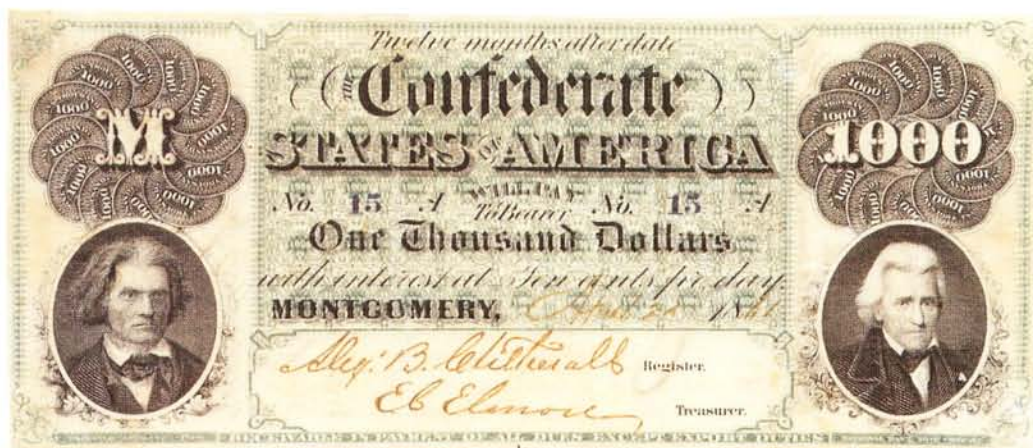 Twelve months after date
THE
Confederate
M
1000
STATES OF AMERICA
WILL PAY
No. 15 A To Bearer No. 15 A
One Thousand Dollars
with interest at Ten cents per day
MONTGOMERY, 1861
Alexr. B. Clitherall Register.
E C Elmore Treasurer.
RECEIVABLE IN PAYMENT OF ALL DUES EXCEPT EXPORT DUTIES